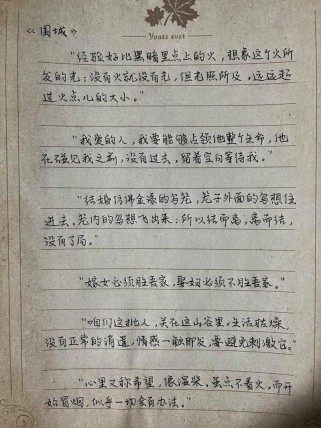 《围城》
Yours ever
"经验好比黑暗里点上的火，想象这个火所
发的光；没有火就没有光，但光照所及，远远超
过火点儿的大小。"
"我爱的人，我要能够占领他整个生命，他
在碰见我之前，没有过去，留着空白等待我。"
"结婚仿佛金漆的鸟笼，笼子外面的鸟想住
进去，笼内的鸟想飞出来；所以结而离，离而结，
没有了局。"
"嫁女必须胜吾家，娶妇必须不胜吾家。"
"咱们这批人，关在这山谷里，生活枯燥，
没有正常的消遣，情感一触即发，要避免刺激它。"
"心里又秤希望，像湿柴，虽点不着火，而开
始冒烟，似乎一切会有办法。"